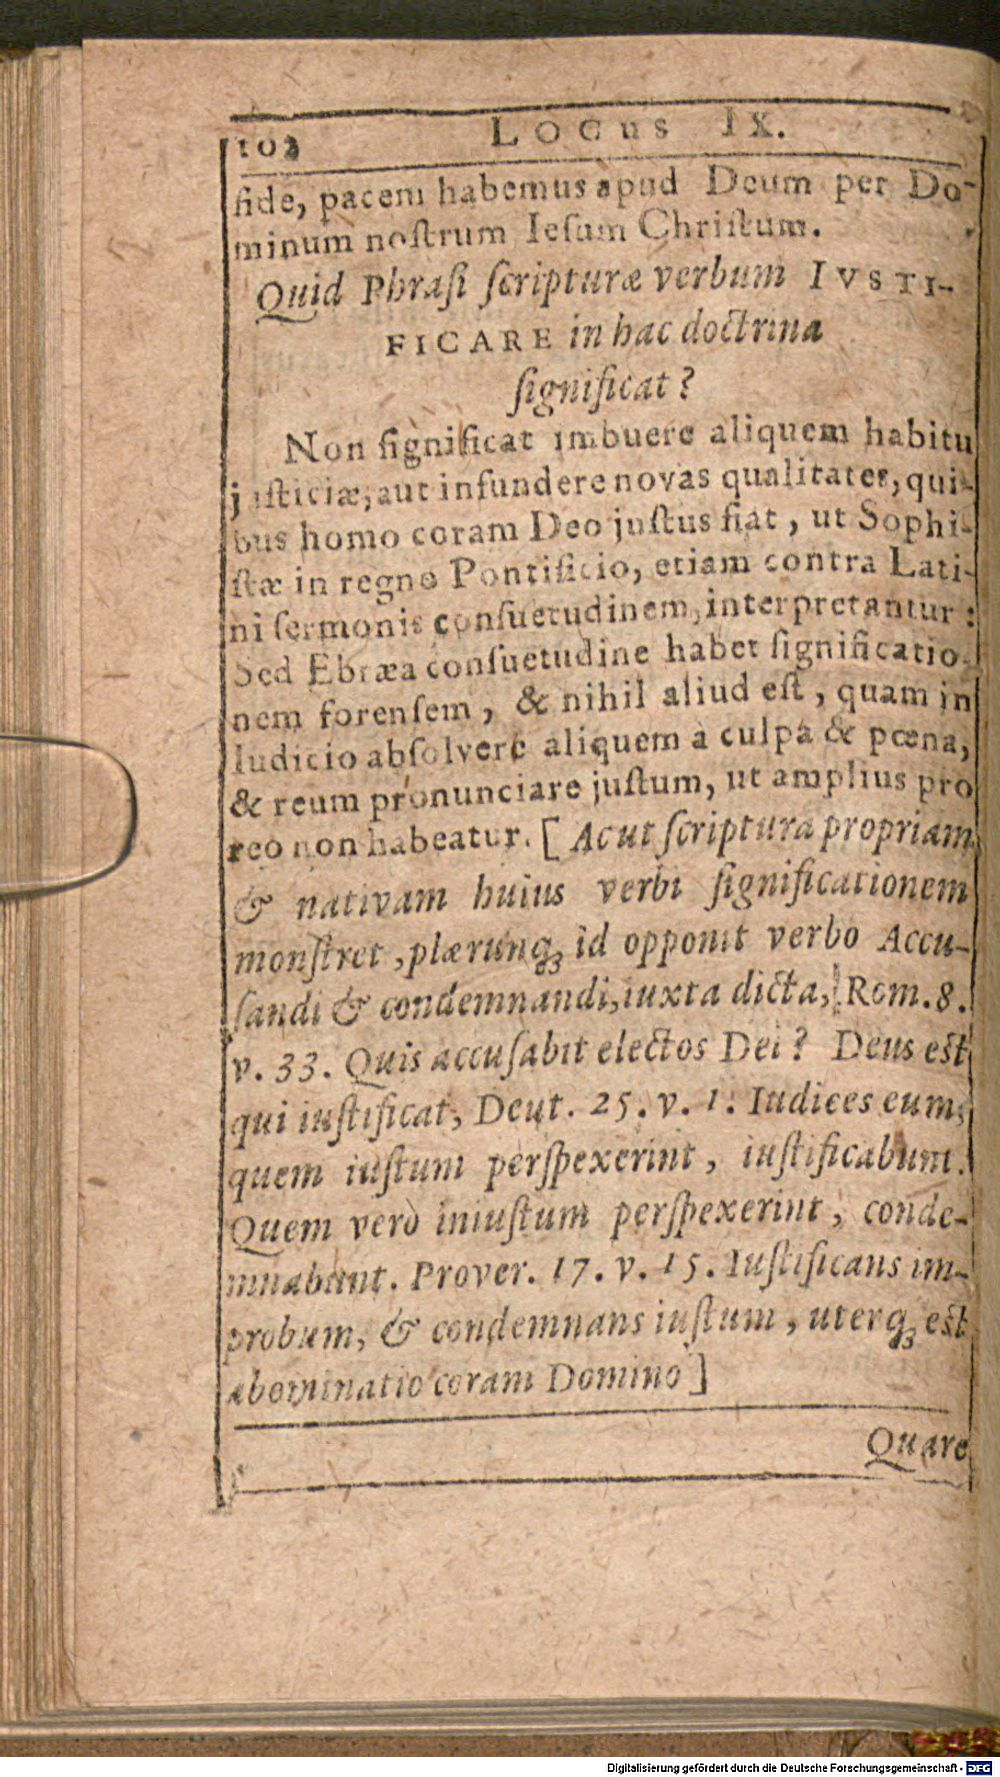 102 LOCUS IX.
fide, pacem habemus apud Deum per Do-
minum nostrum Iesum Christum.
Quid Phrasi scripturæ verbum IVSTI-
FICARE in hac doctrina
significat?
Non significat imbuere aliquem habitu
justiciæ, aut infundere novas qualitates, qui-
bus homo coram Deo justus fiat, ut Sophi-
stæ in regno Pontificio, etiam contra Lati-
ni sermonis consuetudinem, interpretantur:
Sed Ebræa consuetudine habet significatio-
nem forensem, & nihil aliud est, quam in
Iudicio absolvere aliquem à culpa & pœna,
& reum pronunciare justum, ut amplius pro
reo non habeatur. [Ac ut scriptura propriam
& nativam huius verbi significationem
monstret, plærunq; id opponit verbo Accu-
sandi & condemnandi, iuxta dicta, Rom. 8.
v. 33. Quis accusabit electos Dei? Deus est
qui iustificat, Deut. 25. v. 1. Iudices eum,
quem iustum perspexerint, iustificabunt.
Quem verò iniustum perspexerint, conde-
mnabunt. Prover. 17. v. 15. Iustificans im-
probum, & condemnans iustum, uterq; est
abominatio coram Domino]
Quare
Digitalisierung gefördert durch die Deutsche Forschungsgemeinschaft - DFG